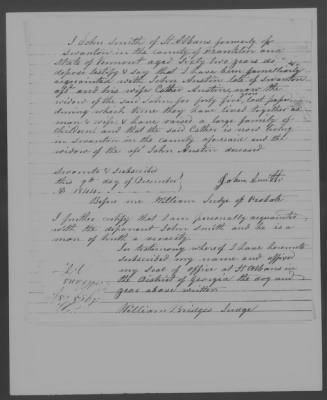 I John Smith of St Albans formerly of
Swanton in the county of Franklin and
State of Vermont aged Sixty two years do
depose testify & say that I have been familiarly
acquainted with John Austin late of Swanton
afs^d and his wife Cather Austin, now the
widow of the said John for forty five years last past
during which time they have lived together as
man & wife & have raised a large family of
children and that the said Cather is now living
in Swanton in the county aforesaid and the
widow of the afs^d John Austin deceased
Sworn to & subscribed
this 9th day of December
1844
John Smith
Before me William Judge of Probate
I further certify that I am personally acquainted
with the deponent John Smith and he is a
man of truth & veracity
In testimony whereof I have hereunto
subscribed my name and affixed
my seal of office at St Albans in
the District of Georgia the day and
year above written
William Bridges Judge